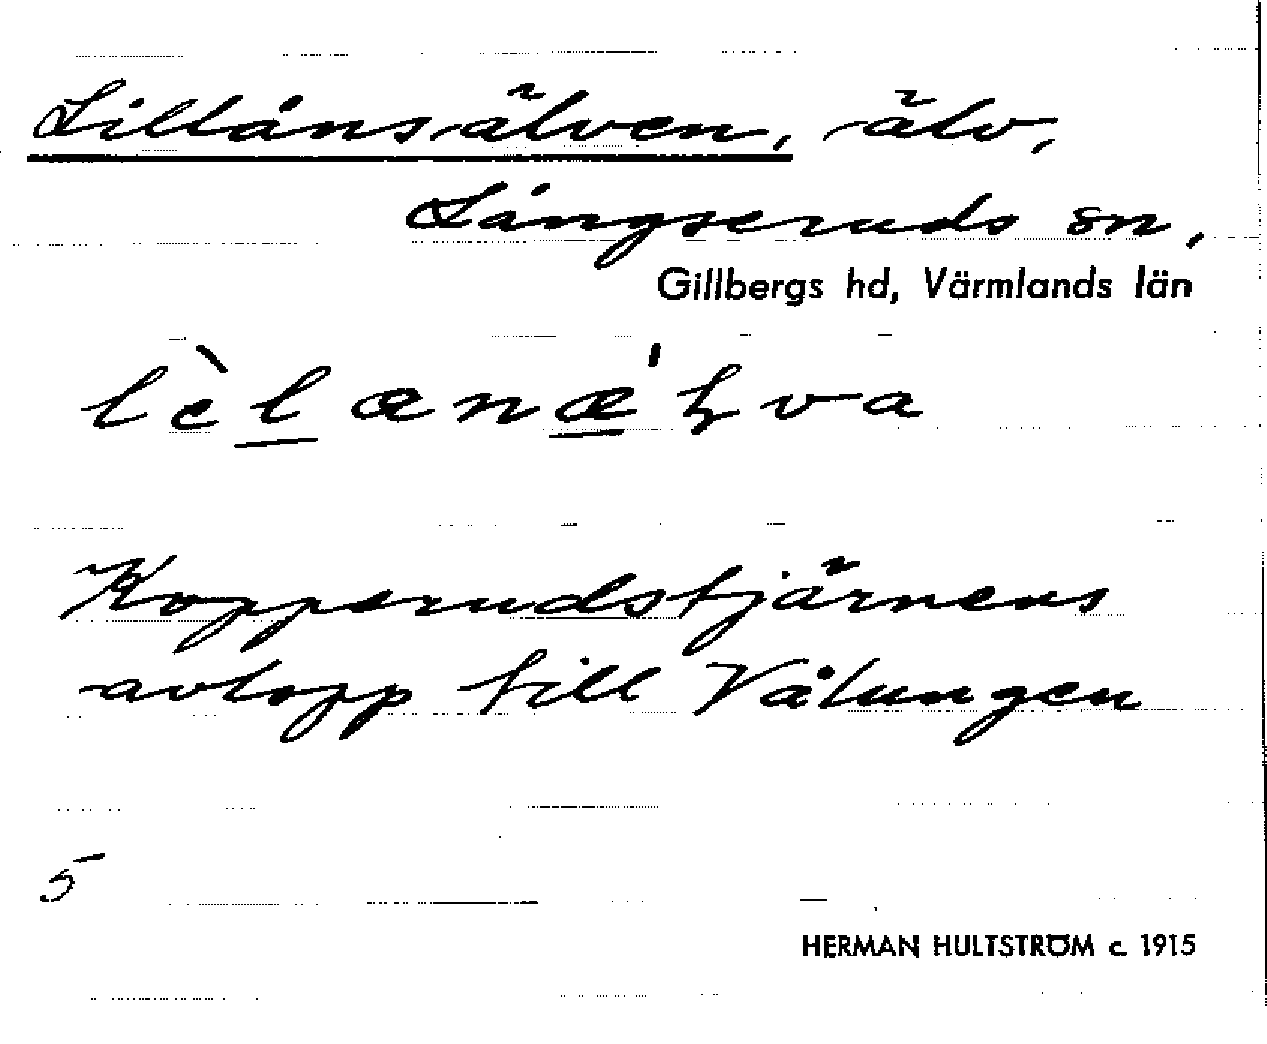 Lillånsälven, älv,
Långseruds sn,
Gillbergs hd, Värmlands län
lèlænǽɽva
Kopperudstjärnens
avlopp till Vålungen
5
HERMAN HULTSTRÖM c. 1915